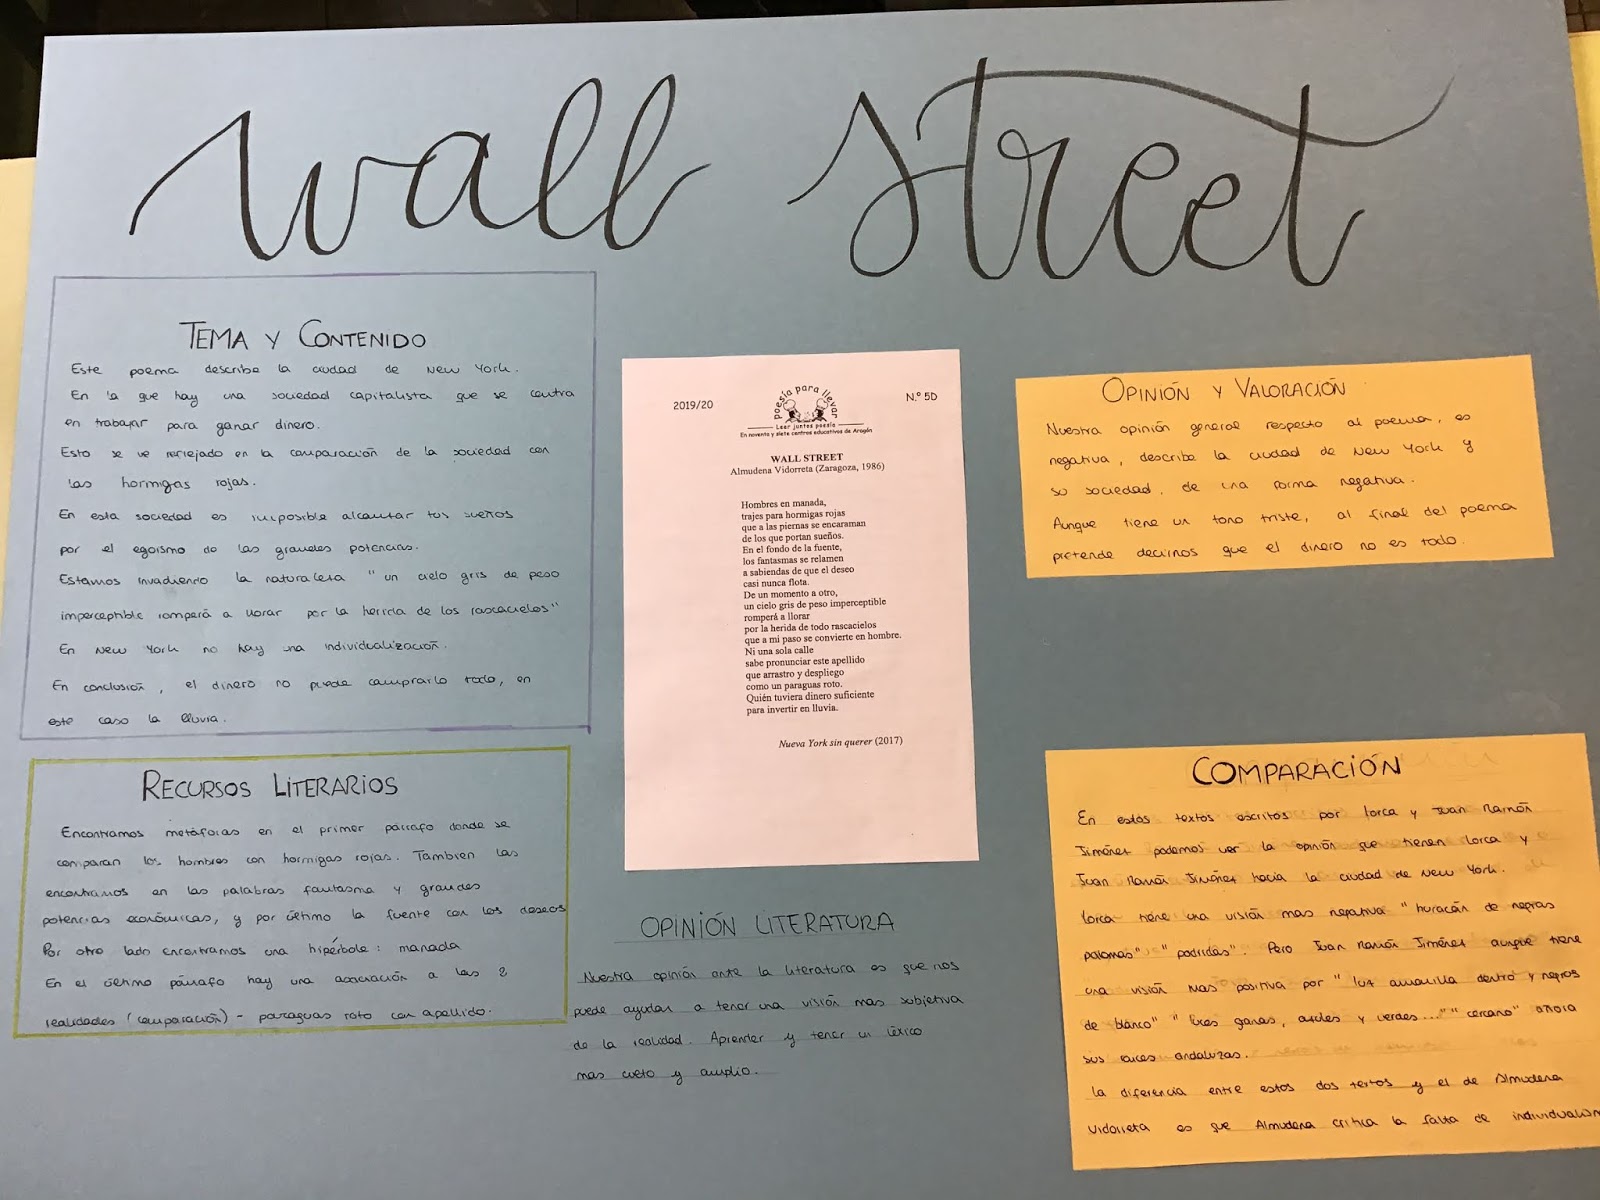 Wall Street
TEMA Y CONTENIDO
Este poema describe la ciudad de New York.
En la que hay una sociedad capitalista que se centra
en trabajar para ganar dinero.
Esto se ve reflejado en la comparación de la sociedad con
las hormigas rojas.
En esta sociedad es imposible alcantar tus sueños
por el egoismo de las grandes potencias.
Estamos invadiendo la naturaleza " un cielo gris de peso
imperceptible romperá a llorar por la herida de los rascacielos"
En New York no hay una individualización.
En conclusión, el dinero no puede comprarlo todo, en
este caso la lluvia.
RECURSOS LITERARIOS
Encontramos metáforas en el primer párrafo donde se
comparan los hombres con hormigas rojas. Tambien las
encontramos en las palabras fantasma y grandes
potencias económicas, y por último la fuente con los deseos
Por otro lado encontramos una hipérbole: manada
En el último párrafo hay una asociación a las 2
realidades (comparación) - paraguas roto con apellido.
2019/20
poesía para llevar
N.º 5D
Leer juntos poesía
En noventa y siete centros educativos de Aragón
WALL STREET
Almudena Vidorreta (Zaragoza, 1986)
Hombres en manada,
trajes para hormigas rojas
que a las piernas se encaraman
de los que portan sueños.
En el fondo de la fuente,
los fantasmas se relamen
a sabiendas de que el deseo
casi nunca flota.
De un momento a otro,
un cielo gris de peso imperceptible
romperá a llorar
por la herida de todo rascacielos
que a mi paso se convierte en hombre.
Ni una sola calle
sabe pronunciar este apellido
que arrastro y despliego
como un paraguas roto.
Quién tuviera dinero suficiente
para invertir en lluvia.
Nueva York sin querer (2017)
OPINIÓN LITERATURA
Nuestra opinión ante la literatura es que nos
puede ayudar a tener una visión mas subjetiva
de la realidad. Aprender y tener un léxico
mas culto y amplio.
OPINIÓN Y VALORACIÓN
Nuestra opinión general respecto al poema, es
negativa, describe la ciudad de New York y
su sociedad, de una forma negativa.
Aunque tiene un tono triste, al final del poema
pretende decirnos que el dinero no es todo.
COMPARACIÓN
En estos textos escritos por Lorca y Juan Ramón
Jiménez podemos ver la opinión que tienen Lorca y
Juan Ramón Jiménez hacia la ciudad de New York.
Lorca tiene una visión mas negativa " huracán de negras
palomas" "podridas". Pero Juan Ramón Jiménez aunque tiene
una visión mas positiva por " luz amarilla dentro y negros
de blanco" " y verdes..." "cercano" añora
sus raíces andaluzas.
La diferencia entre estos dos textos y el de Almudena
Vidorreta es que Almudena critica la falta de individualism